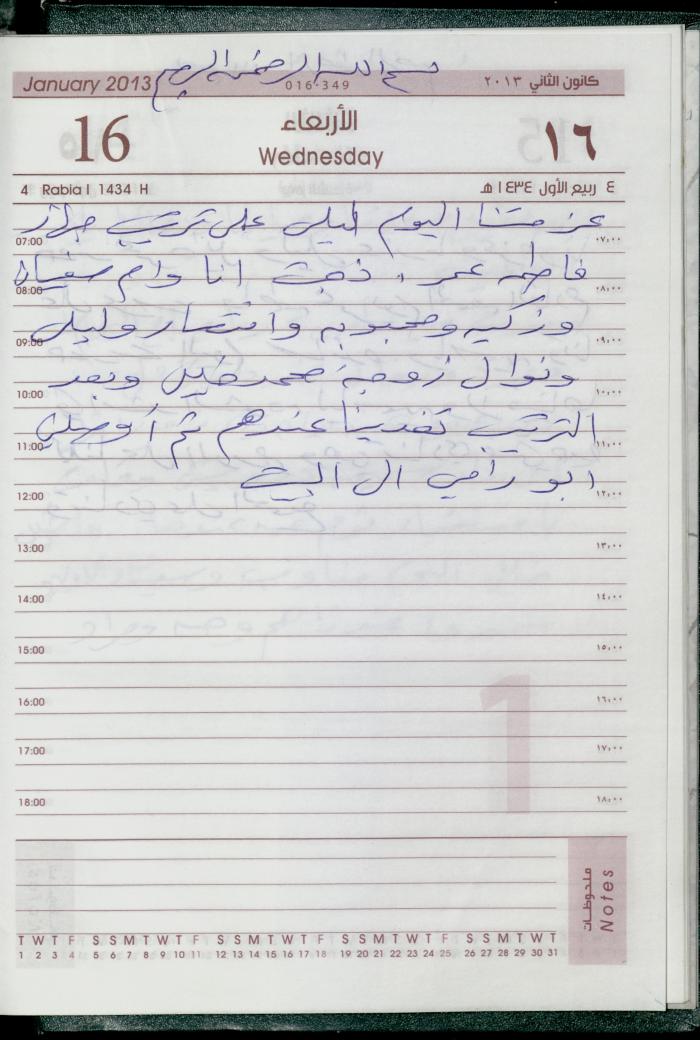 بسم الله الرحمن الرحيم
January 2013
016-349
كانون الثاني ٢٠١٣
16
الأربعاء
Wednesday
١٦
4 Rabia I 1434 H
٤ ربيع الأول ١٤٣٤ هـ
عزمتنا اليوم ليلى على ترتيب جهاز
07:00 ٠٧:٠٠
فاطمه عمر . ذهبت انا وام سفيان
08:00 ٠٨:٠٠
وزكيه ومحبوبه وانتصار وليلى
09:00 ٠٩:٠٠
ونوال زوجة محمد خليل وبعد
10:00 ١٠:٠٠
الترتيب تغدينا عندهم ثم أوصلني
11:00 ١١:٠٠
ابو رامي الى البيت
12:00 ١٢:٠٠
13:00 ١٣:٠٠
14:00 ١٤:٠٠
15:00 ١٥:٠٠
16:00 ١٦:٠٠
17:00 ١٧:٠٠
18:00 ١٨:٠٠
1
ملحوظات
Notes
T W T F S S M T W T F S S M T W T F S S M T W T F S S M T W T
1 2 3 4 5 6 7 8 9 10 11 12 13 14 15 16 17 18 19 20 21 22 23 24 25 26 27 28 29 30 31